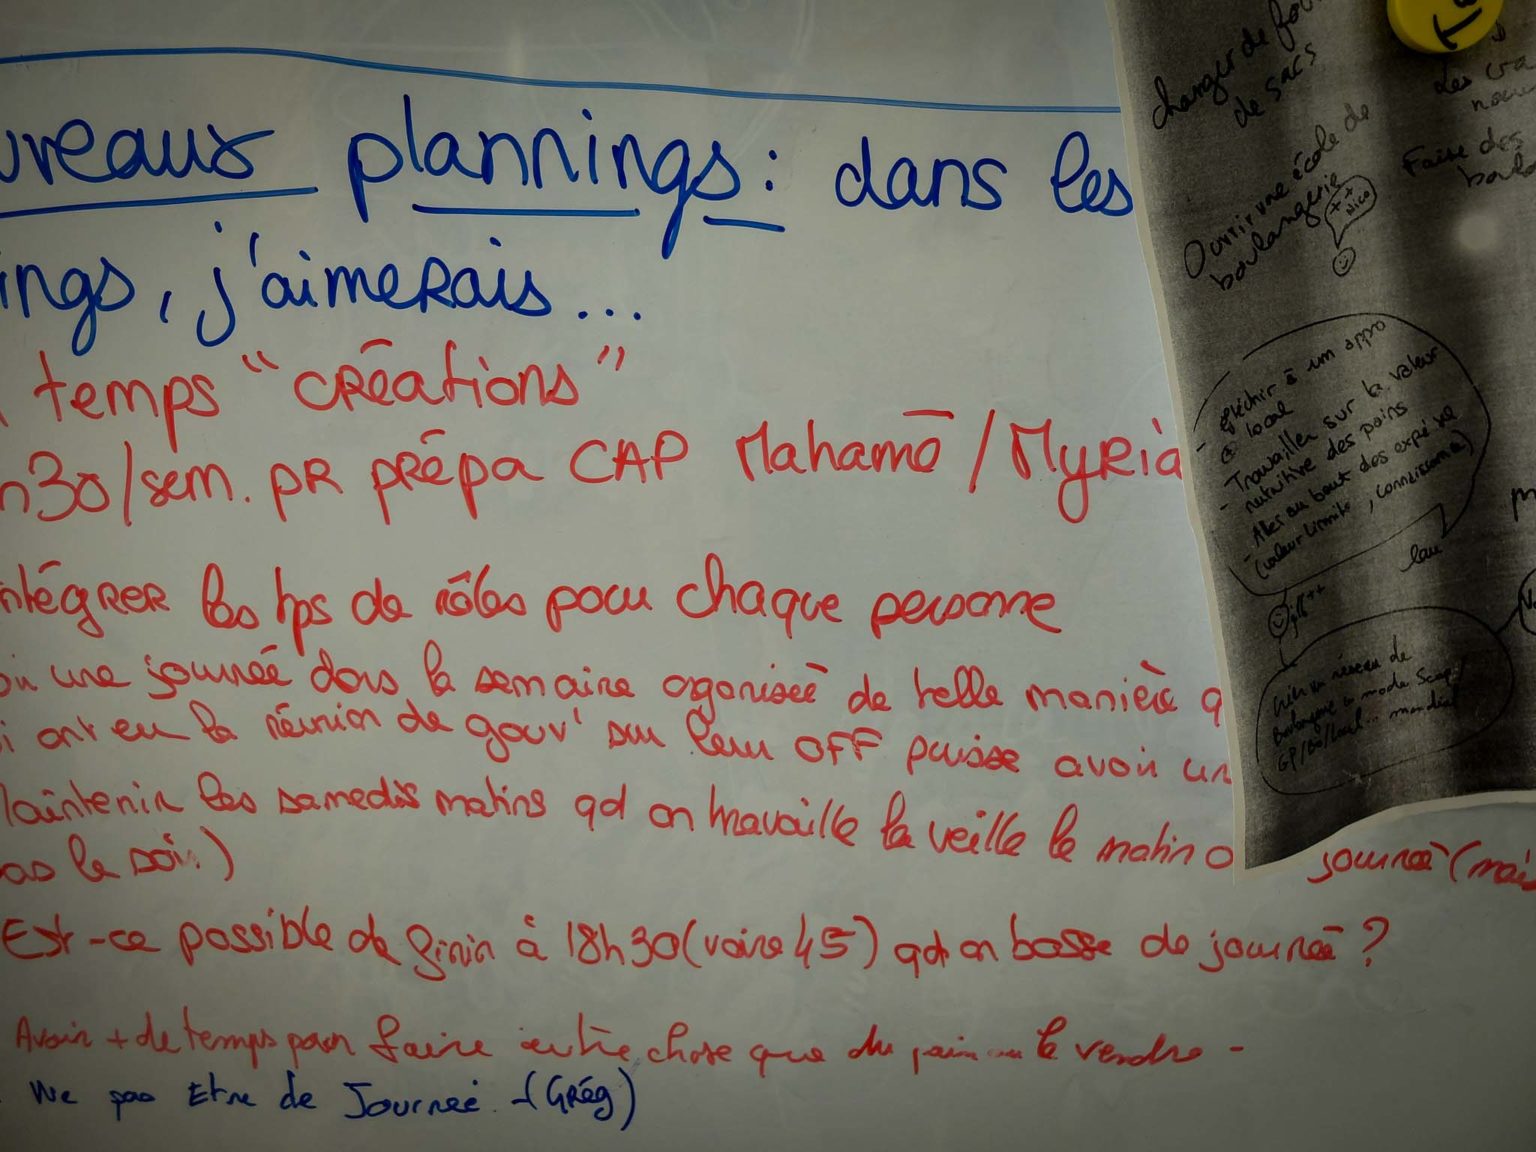 uveaux plannings : dans les
ings, j'aimerais...
temps "créations"
h30/sem. pr prépa CAP Mahamé / Myria
ntégrer les tps de rôles pour chaque personne
une journée dans la semaine organisée de telle manière q
i ont eu la réunion de gouv' sur leur OFF puisse avoir un
aintenir les samedis matins qd on travaille la veille le matin o journée (mais
as le soir.)
Est-ce possible de finir à 18h30 (voire 45) qd on bosse de journée ?
Avoir + de temps pour faire autre chose que du pain ou le vendre -
Ne pas Etre de Journée. - (Grég)
changer de fou
de sacs
Ouvrir une école de
boulangerie
++
Nico
Les
Faire des
boula
- Réfléchir à un appro
local
- Travailler sur la valeur
nutritive des pains
- Aller au bout des expé
(valeur limite, connaissance)
leu
++
Créer un réseau de
Boulangerie en mode Scop/
GP/Bio/Local... mondial